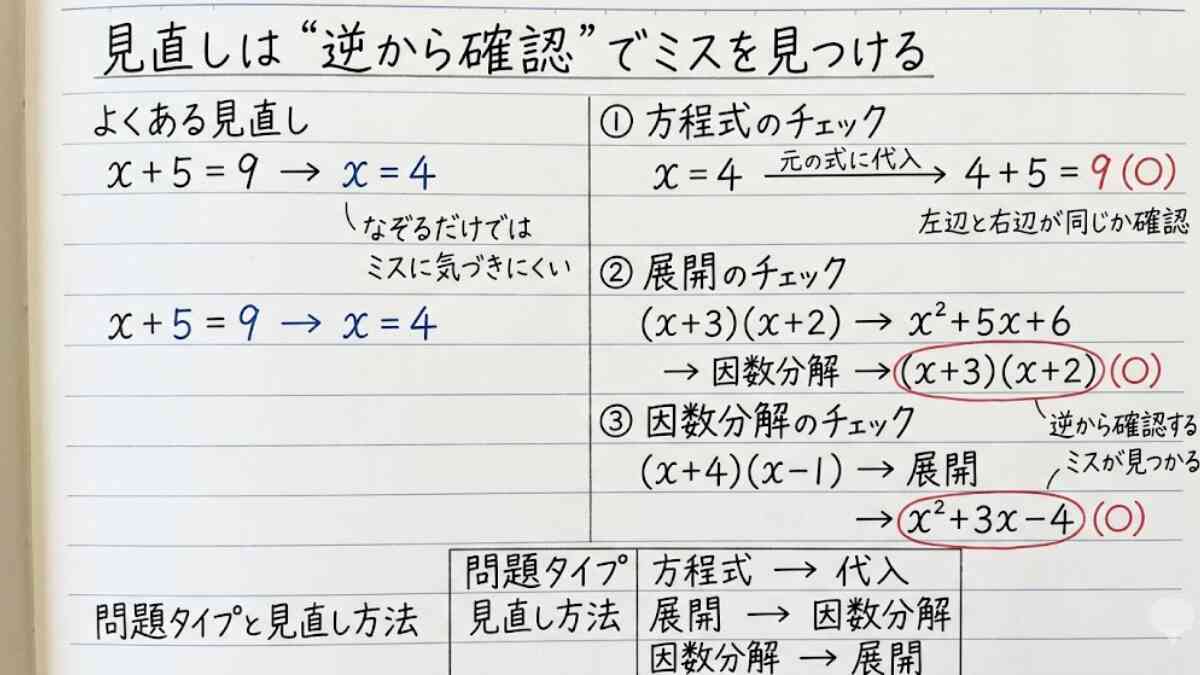 見直しは“逆から確認”でミスを見つける
よくある見直し
x+5=9 → x=4
なぞるだけでは
ミスに気づきにくい
x+5=9 → x=4
① 方程式のチェック
x=4 元の式に代入→ 4+5=9(○)
左辺と右辺が同じか確認
② 展開のチェック
(x+3)(x+2) → x²+5x+6
→ 因数分解 → (x+3)(x+2)(○)
逆から確認する
③ 因数分解のチェック
(x+4)(x−1) → 展開
ミスが見つかる
→ x²+3x−4(○)
問題タイプと見直し方法
問題タイプ 方程式 → 代入
見直し方法 展開 → 因数分解
因数分解 → 展開